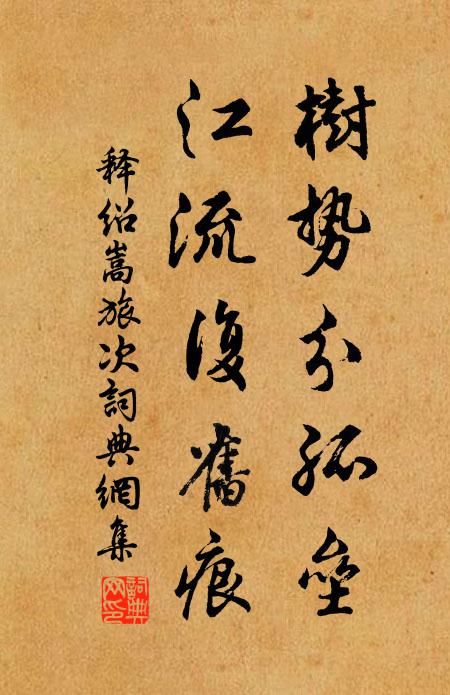 樹勢分孤壘
江流復舊痕
释绍嵩旅次詞典網集
詞典
网印